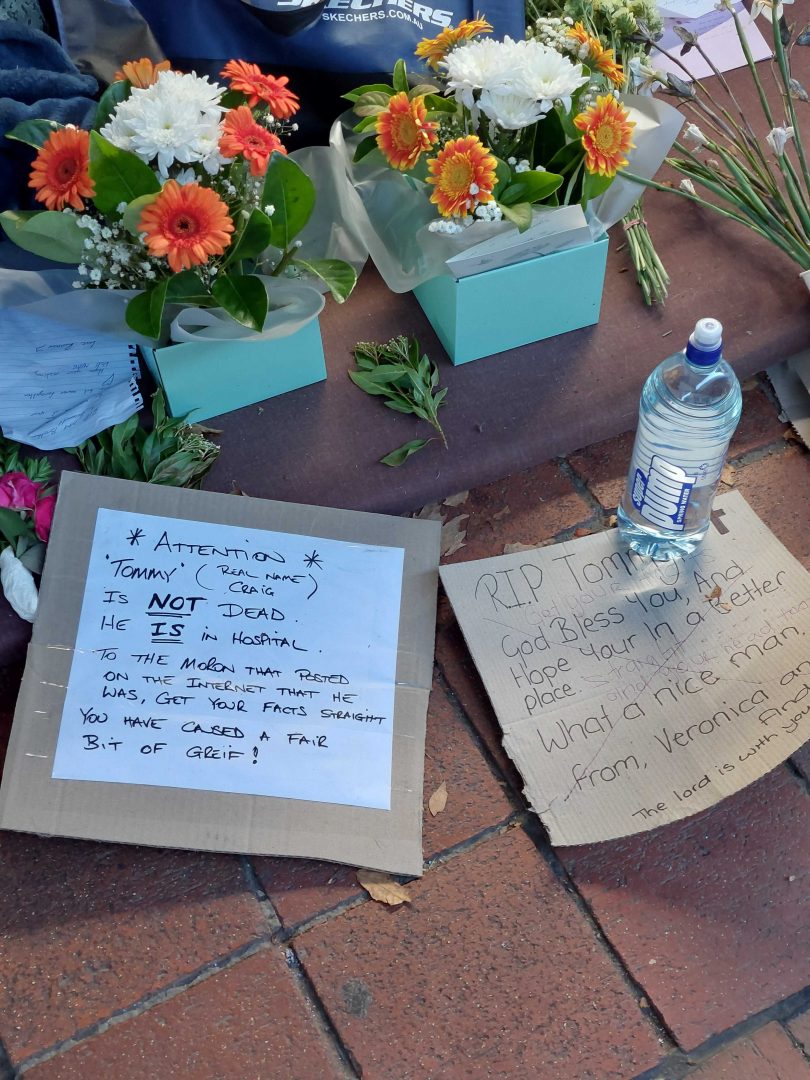 SKECHERS
SKECHERS.COM.AU
* ATTENTION *
'TOMMY' (REAL NAME)
CRAIG
IS NOT DEAD.
HE IS IN HOSPITAL.
TO THE MORON THAT POSTED
ON THE INTERNET THAT HE
WAS, GET YOUR FACTS STRAIGHT
YOU HAVE CAUSED A FAIR
BIT OF GREIF!
PUMP
SPRING WATER
R.I.P Tommy
God Bless You, And
Hope Your In a Better
place.
What a nice man,
from, Veronica an
Find
The lord is with yo